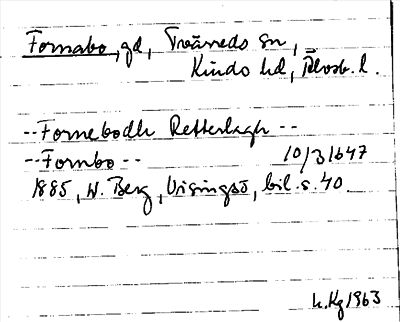 Fornabo, gd, Tvärreds sn,
Kinds hd, Älvsb. l.
--Fornebodh Retterlagh--
--Fornbo-- 10/3 1647
1885, W. Berg, Visingsö, bil. s. 40
h. Kg 1963